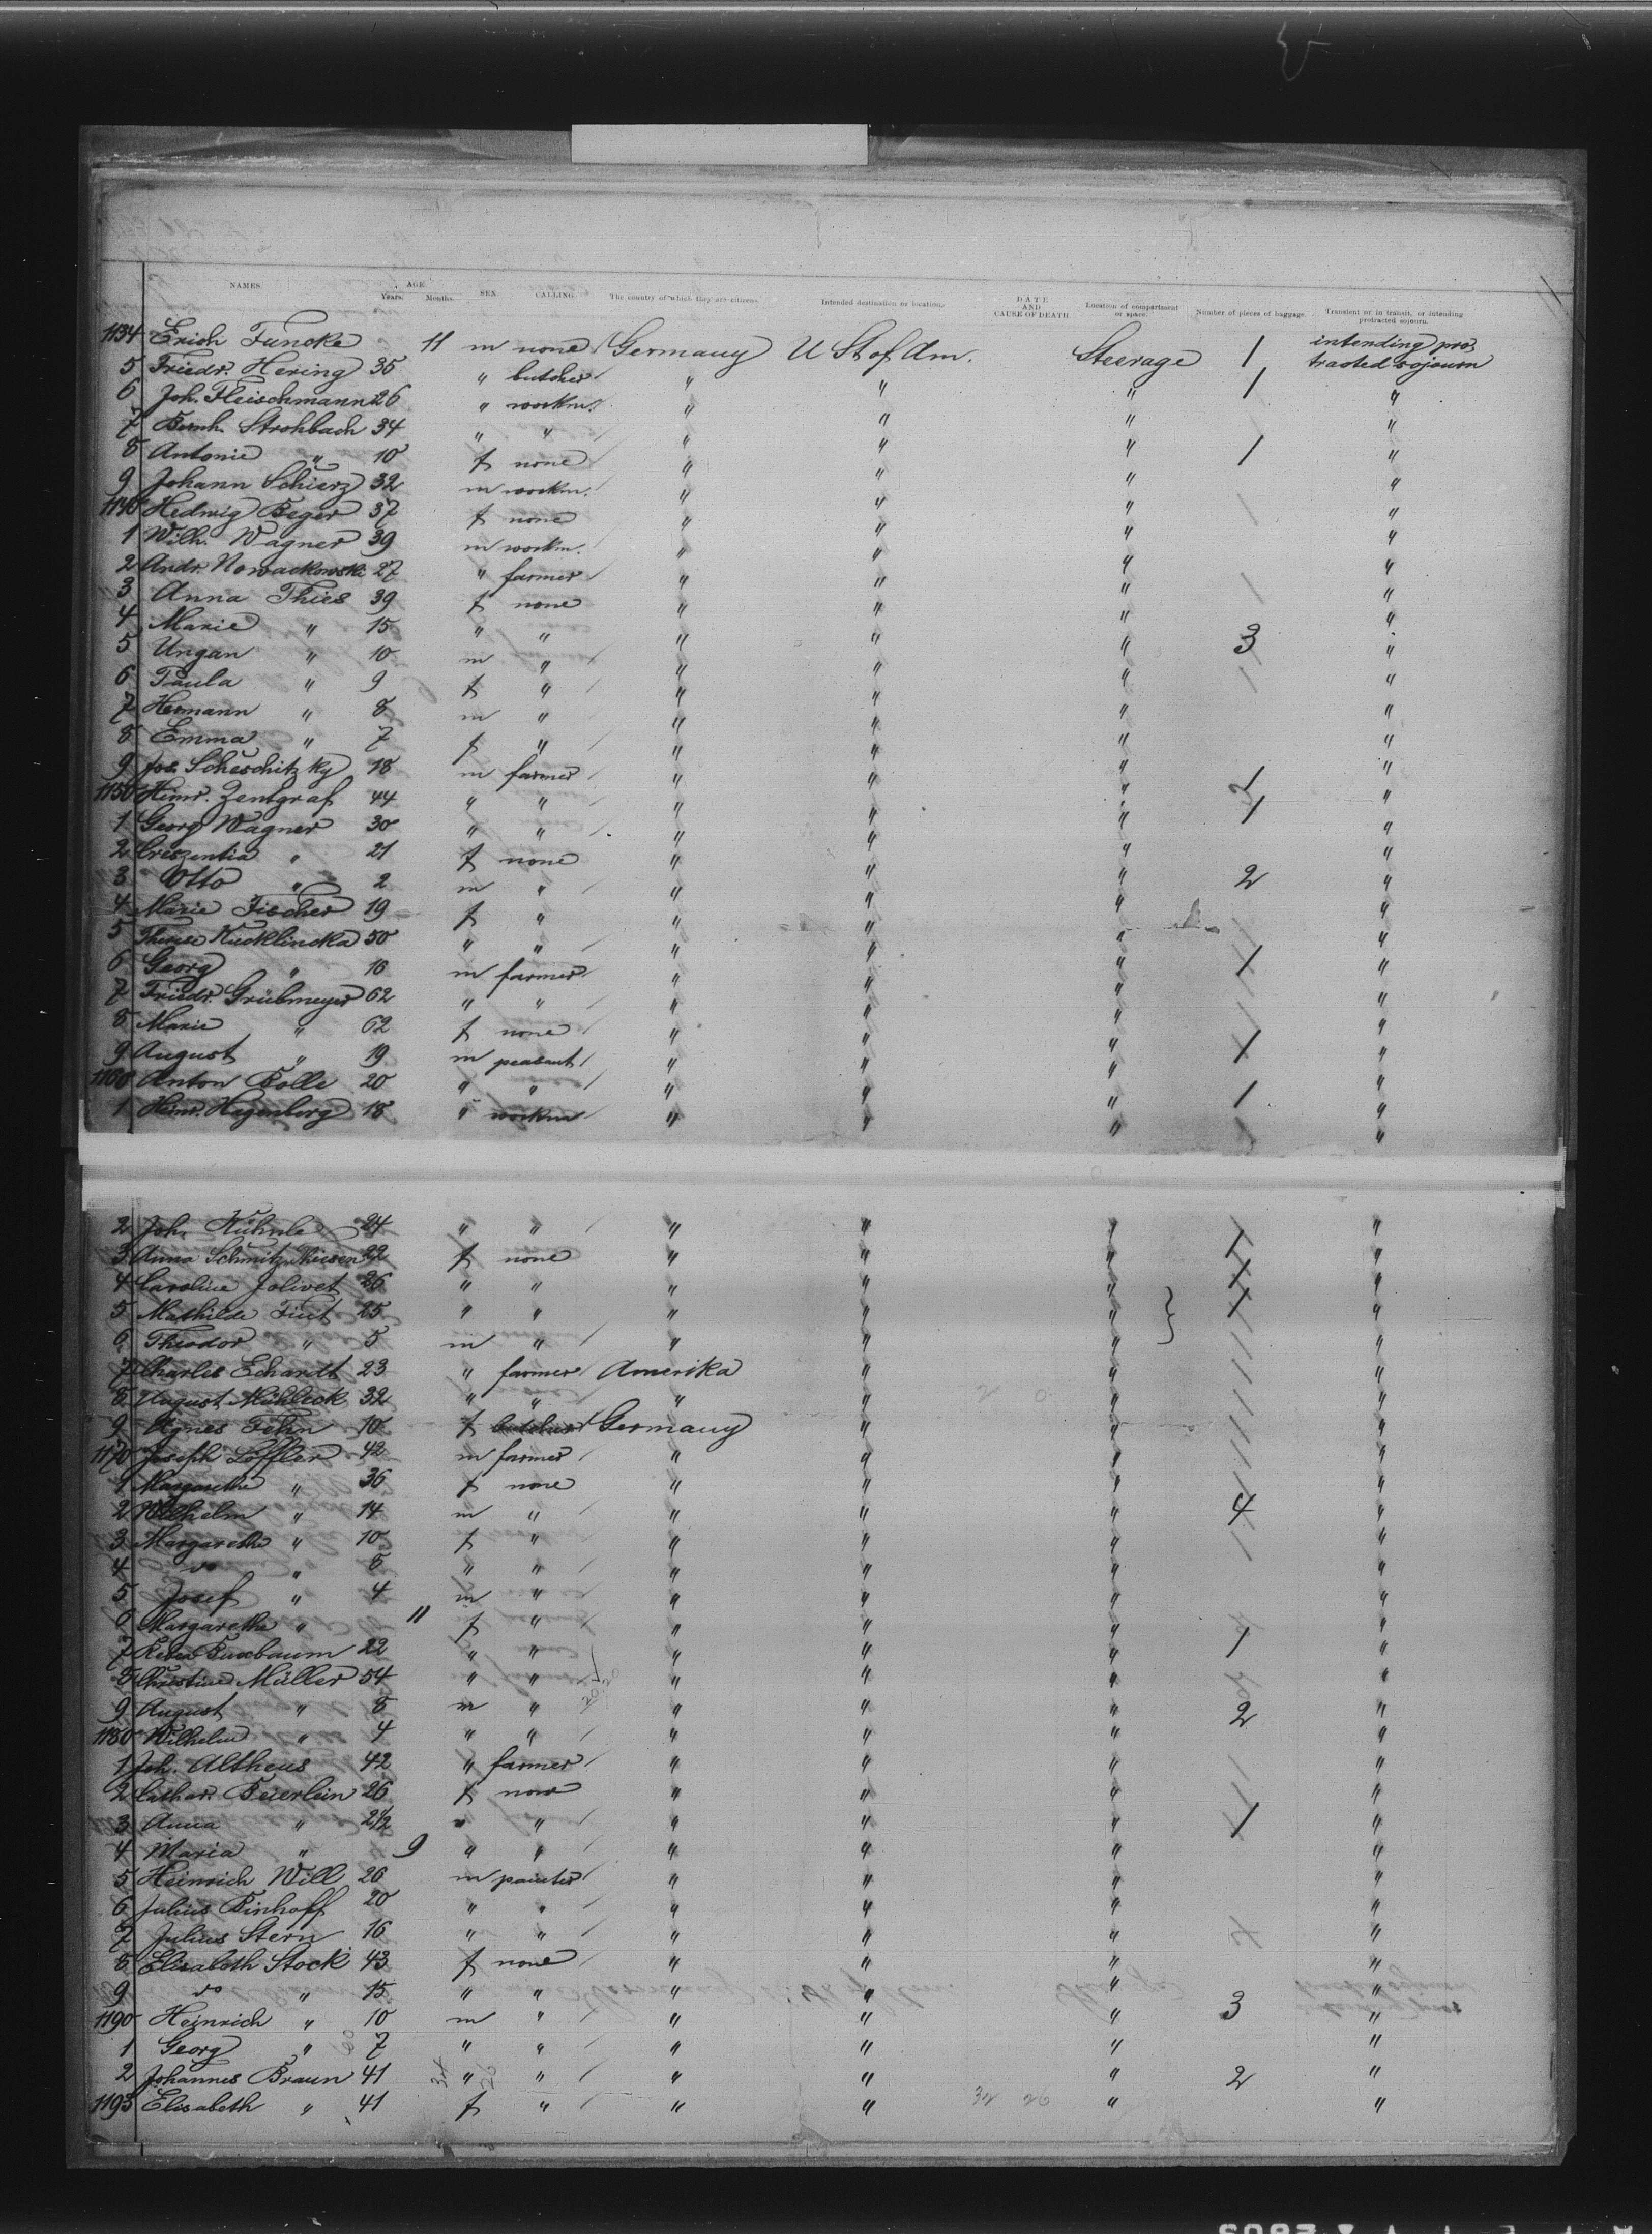 NAMES. AGE Years. Months. SEX. CALLING. The country of which they are citizens. Intended destination or location. DATE AND CAUSE OF DEATH Location of compartment or space. Number of pieces of baggage. Transient or in transit, or intending protracted sojourn.
1134 Erich Funcke 11 m none Germany U St of Am. Steerage 1 intending pro-
tracted sojourn
5 Friedr. Hering 35 " butcher " " " 1 "
6 Joh. Fleischmann 26 " workm. " " " "
7 Bernh. Strohbach 34 " " " " " 1 "
8 Antonie " 10 f none " " " "
9 Johann Schierz 32 m workm. " " " "
1140 Hedwig Beger 37 f none " " " "
1 Wilh. Wagner 39 m workm. " " " "
2 Andr. Nowackowski 27 " farmer " " " "
3 Anna Thies 39 f none " " " "
4 Marie " 15 " " " " " 3 "
5 Ungan " 10 m " " " " "
6 Paula " 9 f " " " " "
7 Hermann " 8 m " " " " "
8 Emma " 7 f " " " " "
9 Jos. Scheschitzky 18 m farmer " " " 1 "
1150 Heinr. Zentgraf 44 " " " " " 1 "
1 Georg Wagner 30 " " " " " "
2 Creszentia " 21 f none " " " "
3 Otto " 2 m " " " " 2 "
4 Marie Fischer 19 f " " " " "
5 Therese Kucklincka 50 " " " " " "
6 Georg " 16 m farmer " " " 1 "
7 Friedr. Grübmeyer 62 " " " " " "
8 Marie " 62 f none " " " "
9 August " 19 m peasant " " " 1 "
1160 Anton Bolle 20 " " " " " "
1 Heinr. Hagenberg 18 " workm " " " 1 "
2 Joh. Kühnle 24 " " " " " 1 "
3 Anna Schmitz 22 f none " " " 1 "
4 Caroline Jolivet 26 " " " " " 1 "
5 Mathilde 25 " " " " " 1 "
6 Theodor " 5 m " " " " "
7 Charles Echardt 23 " farmer Amerika " " "
8 August Mühleck 32 " " " " " "
9 Agnes Fehn 10 f butcher Germany " " "
1170 Joseph Löffler 42 m farmer " " " "
1 Margarethe " 36 f none " " " "
2 Wilhelm " 14 m " " " " 4 "
3 Margarethe " 10 f " " " " "
4 do " 8 " " " " " "
5 Josef " 4 m " " " " "
6 Margarethe " 11 f " " " " "
7 Buxbaum 22 " " " " " 1 "
8 Christine Müller 54 " " " " " "
9 August " 8 m " " " " 2 "
1180 Wilhelm " 4 " " " " " "
1 Joh. Altheus 42 " farmer " " " "
2 Cathar. Beierlein 26 f none " " " "
3 Anna " 2 1/2 " " " " " 1 "
4 Maria " 9 " " " " " "
5 Heinrich Will 26 m painter " " " "
6 Julius Binhoff 20 " " " " " "
7 Julius Stern 16 " " " " " "
8 Elisabeth Stock 43 f none " " " "
9 do " 15 " " " " " "
1190 Heinrich " 10 m " " " " 3 "
1 Georg " 7 " " " " " "
2 Johannes Braun 41 " " " " " 2 "
1193 Elisabeth " 41 f " " " " "